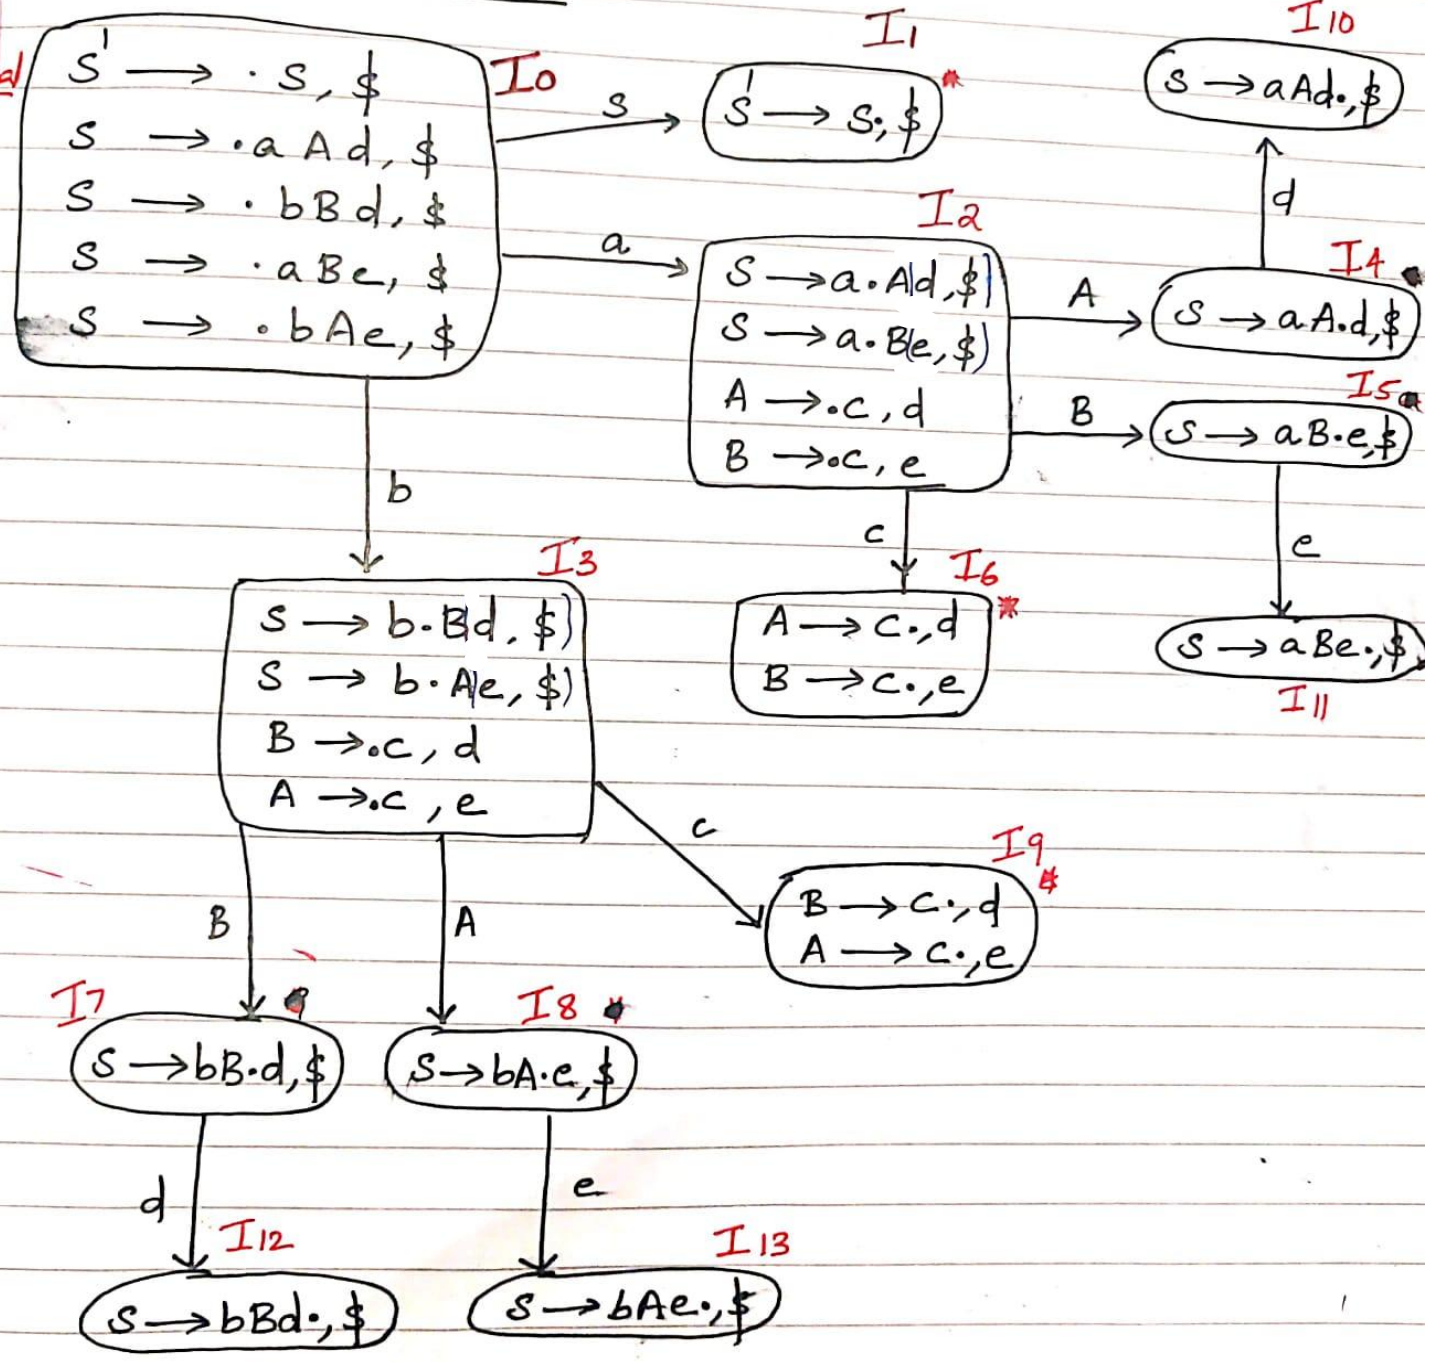 a)
I0
S' → ·S, $
S → ·aAd, $
S → ·bBd, $
S → ·aBe, $
S → ·bAe, $
S
I1
S' → S·, $
*
a
I2
S → a·A(d, $)
S → a·B(e, $)
A → ·c, d
B → ·c, e
A
I4
S → aA·d, $
d
I10
S → aAd·, $
B
I5
S → aB·e, $
e
S → aBe·, $
I11
c
I6
*
A → c·, d
B → c·, e
b
I3
S → b·B(d, $)
S → b·A(e, $)
B → ·c, d
A → ·c, e
c
I9
*
B → c·, d
A → c·, e
B
I7
S → bB·d, $
A
I8
S → bA·e, $
d
I12
S → bBd·, $
e
I13
S → bAe·, $